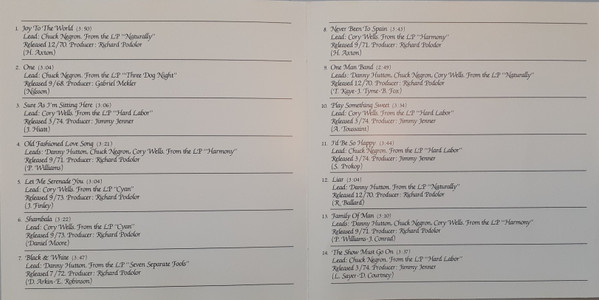 1. Joy To The World (3:50)
Lead: Chuck Negron. From the LP "Naturally"
Released 12/70. Producer: Richard Podolor
(H. Axton)
2. One (3:04)
Lead: Chuck Negron. From the LP "Three Dog Night"
Released 9/68. Producer: Gabriel Mekler
(Nilsson)
3. Sure As I'm Sitting Here (3:06)
Lead: Cory Wells. From the LP "Hard Labor"
Released 5/74. Producer: Jimmy Jenner
(J. Hiatt)
4. Old Fashioned Love Song (3:21)
Leads: Danny Hutton, Chuck Negron, Cory Wells. From the LP "Harmony"
Released 9/71. Producer: Richard Podolor
(P. Williams)
5. Let Me Serenade You (3:04)
Lead: Cory Wells. From the LP "Cyan"
Released 9/73. Producer: Richard Podolor
(J. Finley)
6. Shambala (3:22)
Lead: Cory Wells. From the LP "Cyan"
Released 9/73. Producer: Richard Podolor
(Daniel Moore)
7. Black & White (3:47)
Lead: Danny Hutton. From the LP "Seven Separate Fools"
Released 7/72. Producer: Richard Podolor
(D. Arkin-E. Robinson)
8. Never Been To Spain (3:43)
Lead: Cory Wells. From the LP "Harmony"
Released 9/71. Producer: Richard Podolor
(H. Axton)
9. One Man Band (2:49)
Leads: Danny Hutton, Chuck Negron, Cory Wells. From the LP "Naturally"
Released 12/70. Producer: Richard Podolor
(T. Kaye-J. Tyme-B. Fox)
10. Play Something Sweet (3:54)
Lead: Cory Wells. From the LP "Hard Labor"
Released 5/74. Producer: Jimmy Jenner
(A. Toussaint)
11. I'd Be So Happy (3:44)
Lead: Chuck Negron. From the LP "Hard Labor"
Released 5/74. Producer: Jimmy Jenner
(S. Prokop)
12. Liar (3:04)
Lead: Danny Hutton. From the LP "Naturally"
Released 12/70. Producer: Richard Podolor
(R. Ballard)
13. Family Of Man (3:10)
Leads: Danny Hutton, Chuck Negron, Cory Wells. From the LP "Harmony"
Released 9/71. Producer: Richard Podolor
(P. Williams-J. Conrad)
14. The Show Must Go On (3:37)
Lead: Chuck Negron. From the LP "Hard Labor"
Released 5/74. Producer: Jimmy Jenner
(L. Sayer-D. Courtney)